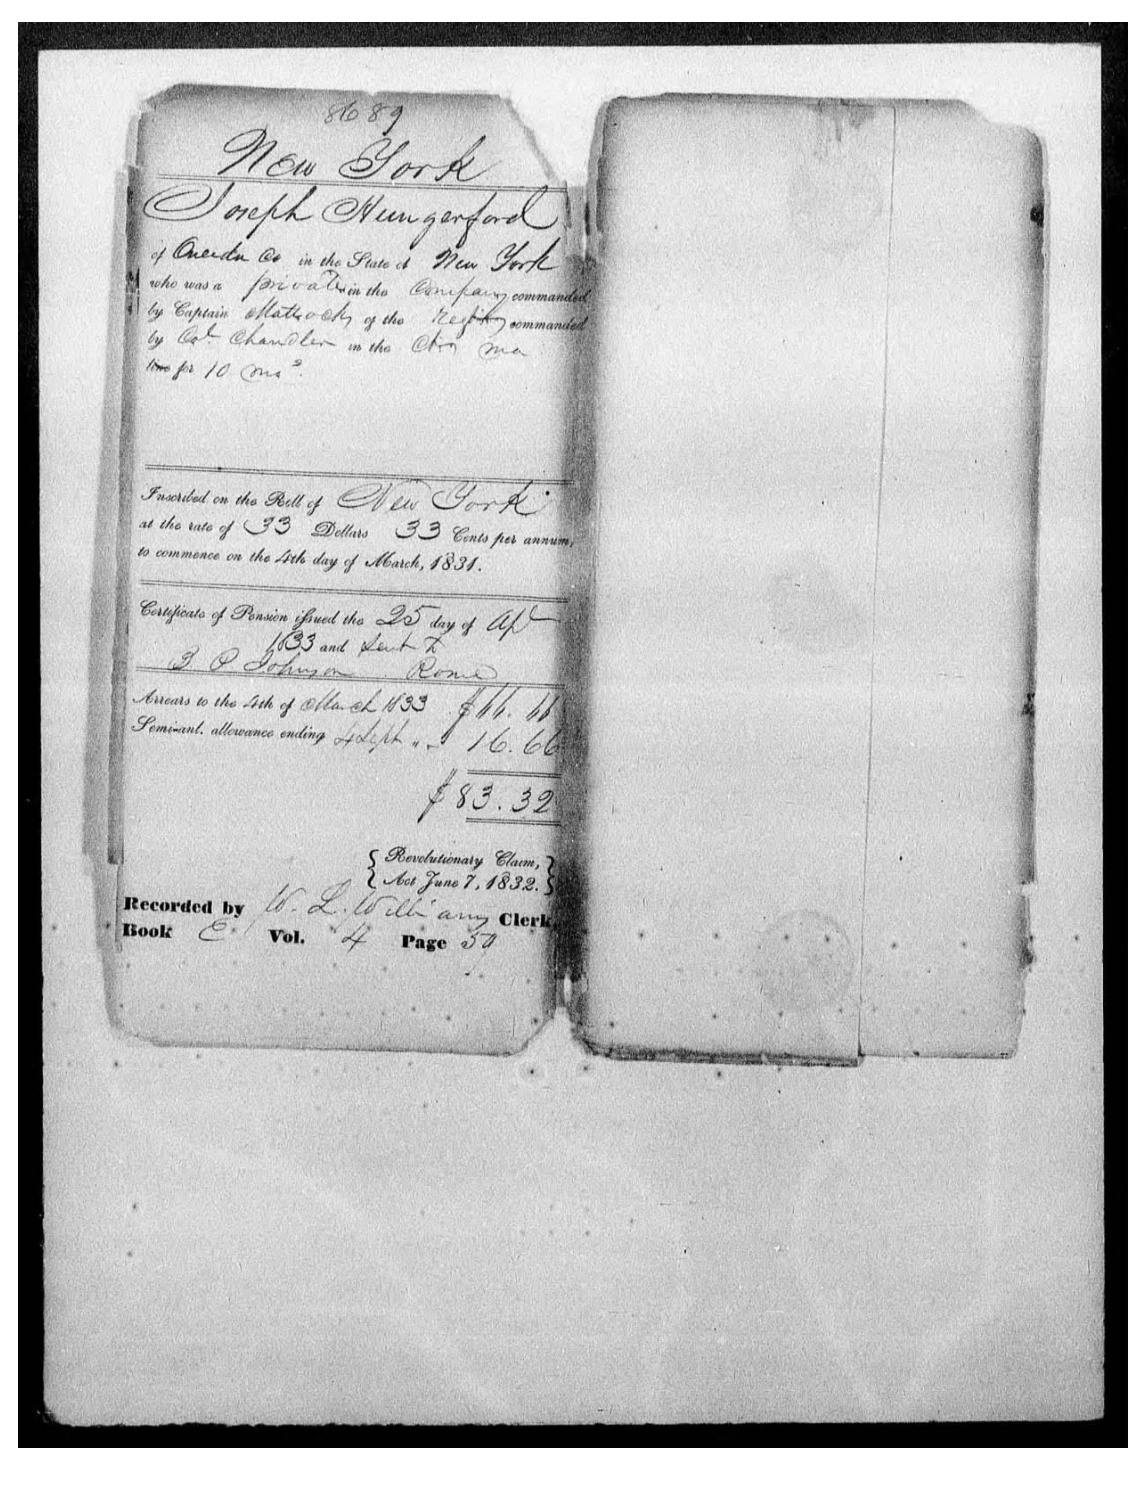 8689
New York
Joseph Hungerford
of Oneida Co in the State of New York
who was a private in the Company commanded
by Captain Mattocks of the Regt commanded
by Col. Chandler in the
for 10 mos.
Inscribed on the Roll of New York
at the rate of 33 Dollars 33 Cents per annum,
to commence on the 4th day of March, 1831.
Certificate of Pension issued the 25 day of Apl
1833 and sent to
B P Johnson Rome
Arrears to the 4th of March 1833 $66.66
Semi-anl. allowance ending 4 Sept " " 16.66
$83.32
{ Revolutionary Claim, }
{ Act June 7, 1832. }
Recorded by W. L. Williams Clerk,
Book E. Vol. 4 Page 59